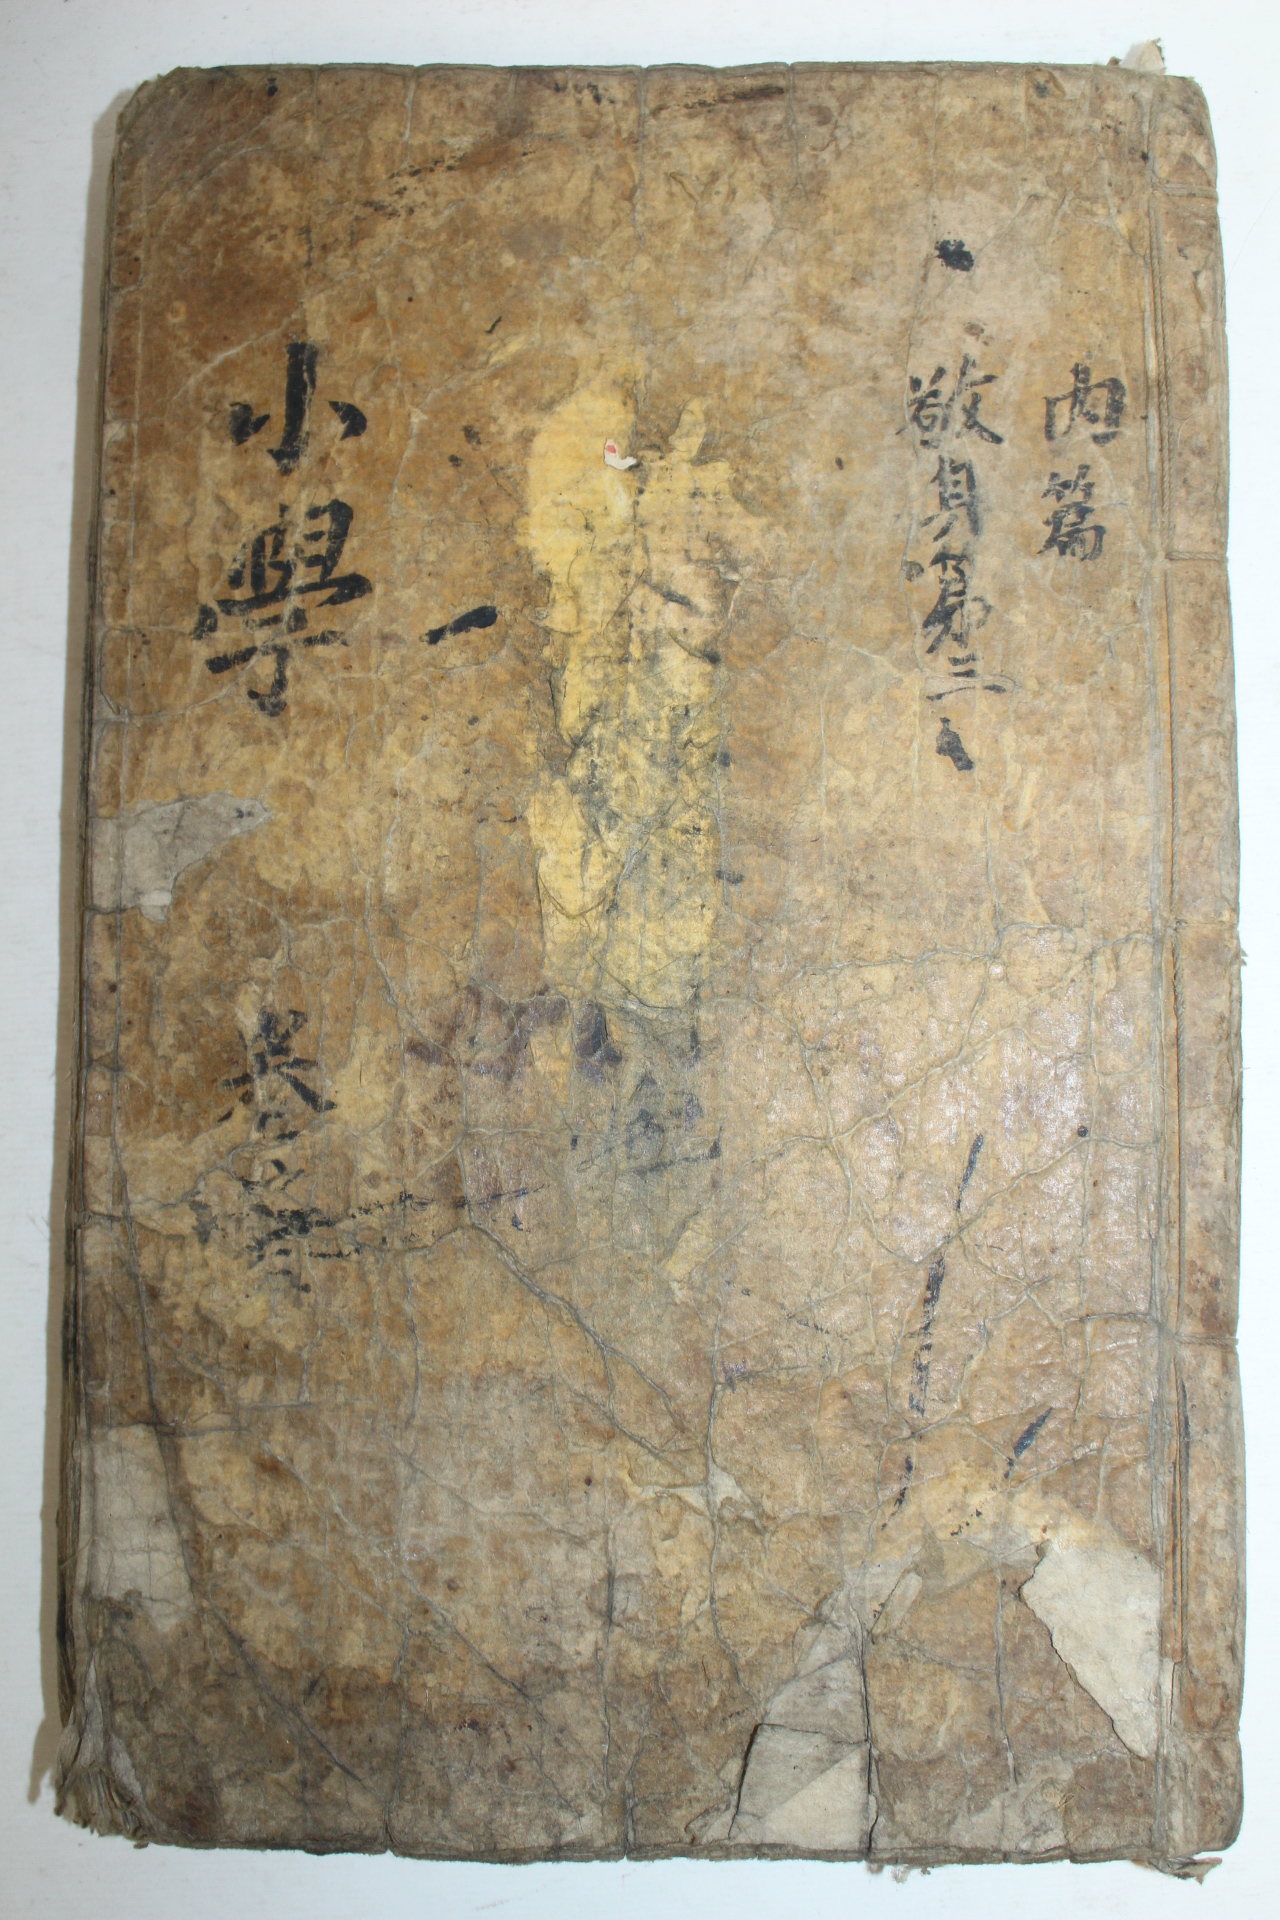 內篇
敬身第三
小學 卷之